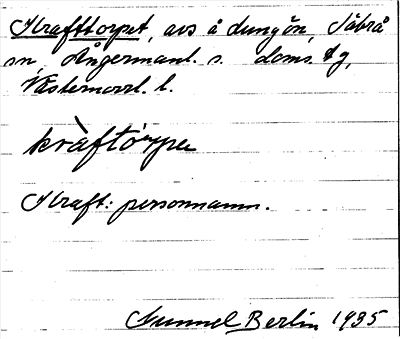 Krafttorpet, avs å Lungön, Säbrå
sn, Ångermanl. s. doms. tg,
Västernorrl. l.
kràftórpe
Kraft: personnamn.
Gunnel Berlin 1935